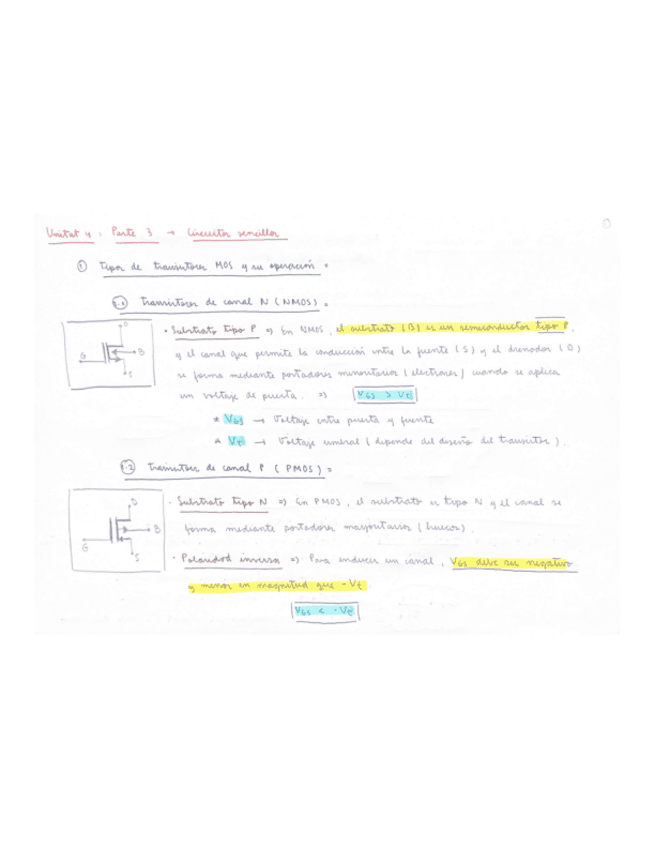 Unitat 4: Parte 3 → Circuitos sencillos
1
① Tipos de transistores MOS y su operación:
1.1 Transistores de canal N (NMOS):
D
G
B
S
· Substrato tipo P => En NMOS, el substrato (B) es un semiconductor tipo P,
y el canal que permite la conducción entre la fuente (S) y el drenador (D)
se forma mediante portadores minoritarios (electrones) cuando se aplica
un voltaje de puerta. => VGS > Vt
* VGS → Voltaje entre puerta y fuente
* Vt → Voltaje umbral (depende del diseño del transistor).
1.2 Transistores de canal P (PMOS):
D
G
B
S
· Substrato tipo N => En PMOS, el substrato es tipo N y el canal se
forma mediante portadores mayoritarios (huecos).
· Polaridad inversa => Para inducir un canal, VGS debe ser negativo
y menor en magnitud que -Vt.
VGS < -Vt